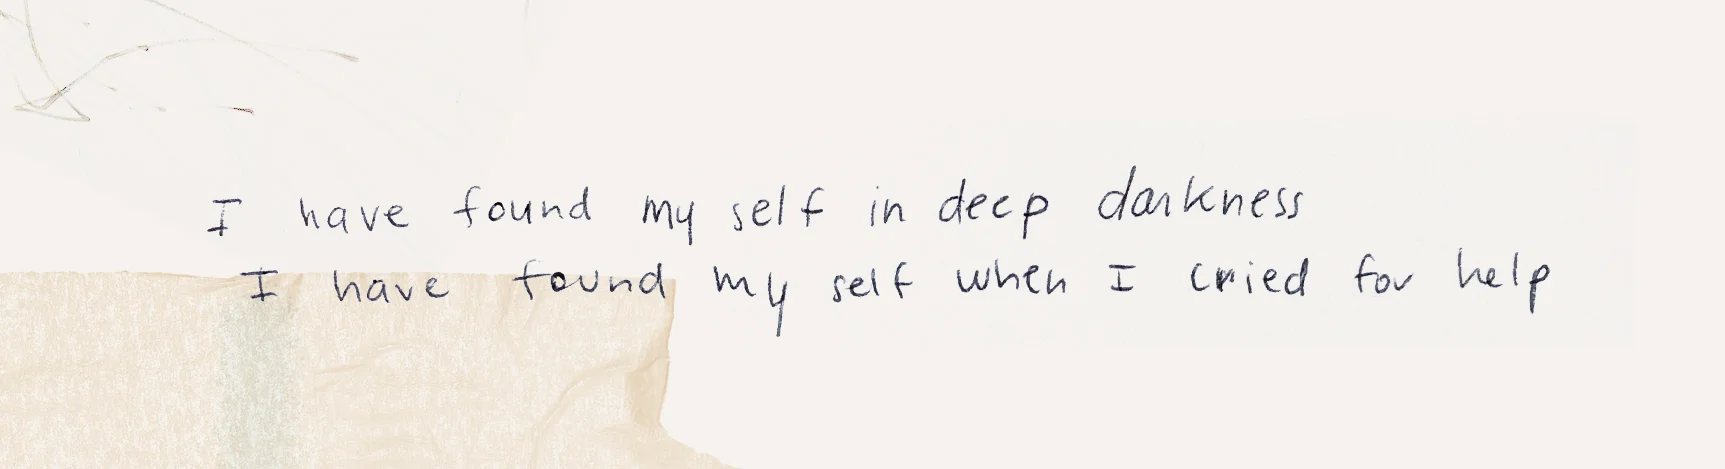 I have found my self in deep darkness
I have found my self when I cried for help